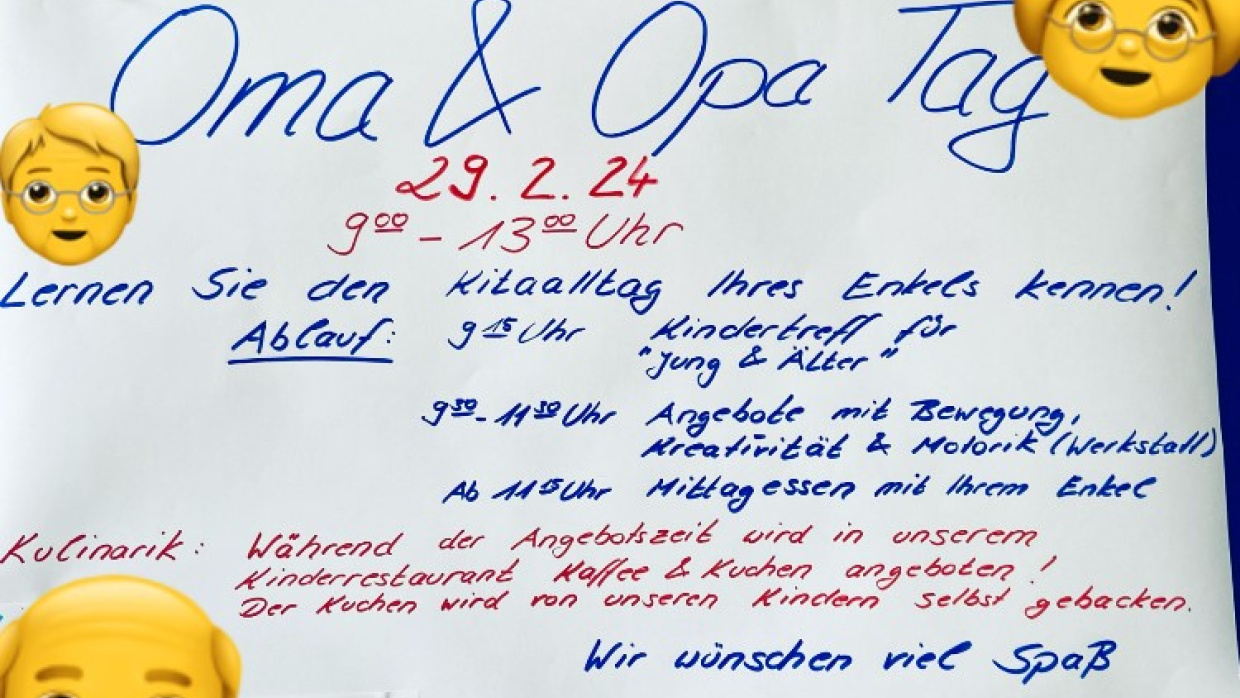 Oma & Opa Tag
29.2.24
9⁰⁰ - 13⁰⁰ Uhr
Lernen Sie den Kitaalltag Ihres Enkels kennen!
Ablauf: 9¹⁵ Uhr Kindertreff für
"Jung & Älter"
9³⁰ - 11³⁰ Uhr Angebote mit Bewegung,
Kreativität & Motorik (Werkstatt)
Ab 11¹⁵ Uhr Mittagessen mit Ihrem Enkel
Kulinarik: Während der Angebotszeit wird in unserem
Kinderrestaurant Kaffee & Kuchen angeboten!
Der Kuchen wird von unseren Kindern selbst gebacken.
Wir wünschen viel Spaß